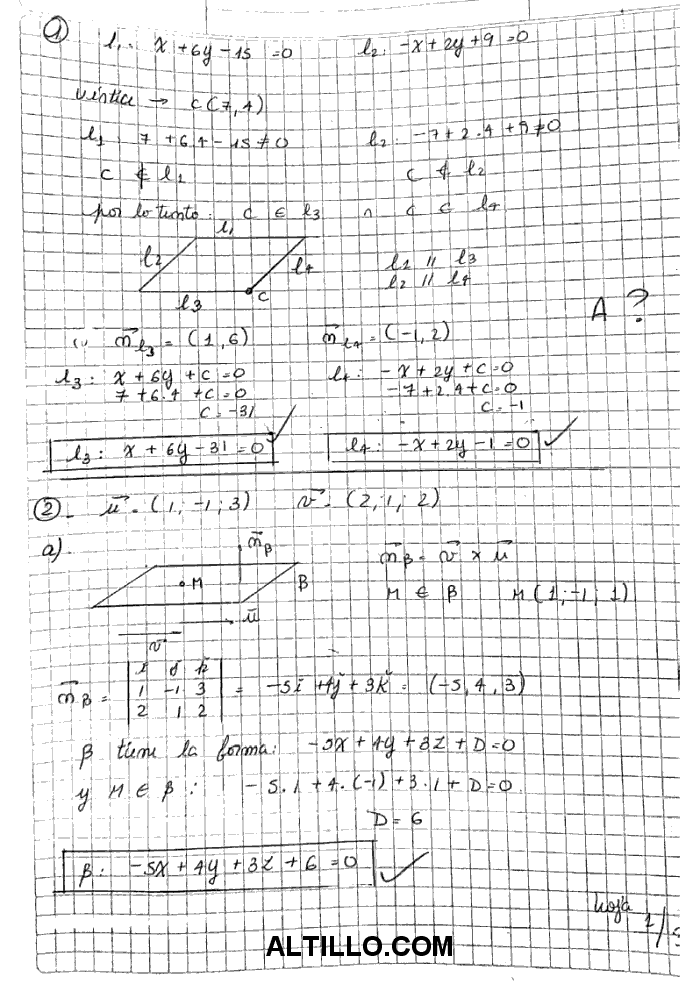 ① l₁: x + 6y - 15 = 0    l₂: -x + 2y + 9 = 0
vértice → C(7,4)
l₁: 7 + 6.4 - 15 ≠ 0    l₂: -7 + 2.4 + 9 ≠ 0
C ∉ l₁    C ∉ l₂
por lo tanto: C ∈ l₃ ∩ C ∈ l₄
l₁
l₂    l₄    l₁ // l₃
l₂ // l₄
l₃    C
A ?
n⃗l₃ = (1,6)    n⃗l₄ = (-1,2)
l₃: x + 6y + C = 0    l₄: -x + 2y + C = 0
7 + 6.4 + C = 0    -7 + 2.4 + C = 0
C = -31    C = -1
l₃: x + 6y - 31 = 0 ✓    l₄: -x + 2y - 1 = 0 ✓
②. u⃗ = (1; -1; 3)    v⃗ = (2; 1; 2)
a)
n⃗β    n⃗β = v⃗ x u⃗
M    β    M ∈ β    M(1; -1; 1)
u⃗
v⃗
i j k
n⃗β = | 1 -1 3 | = -5i + 4j + 3k = (-5, 4, 3)
2 1 2
β tiene la forma: -5x + 4y + 3z + D = 0
y M ∈ β: -5.1 + 4.(-1) + 3.1 + D = 0
D = 6
β: -5x + 4y + 3z + 6 = 0 ✓
hoja
1/5
ALTILLO.COM